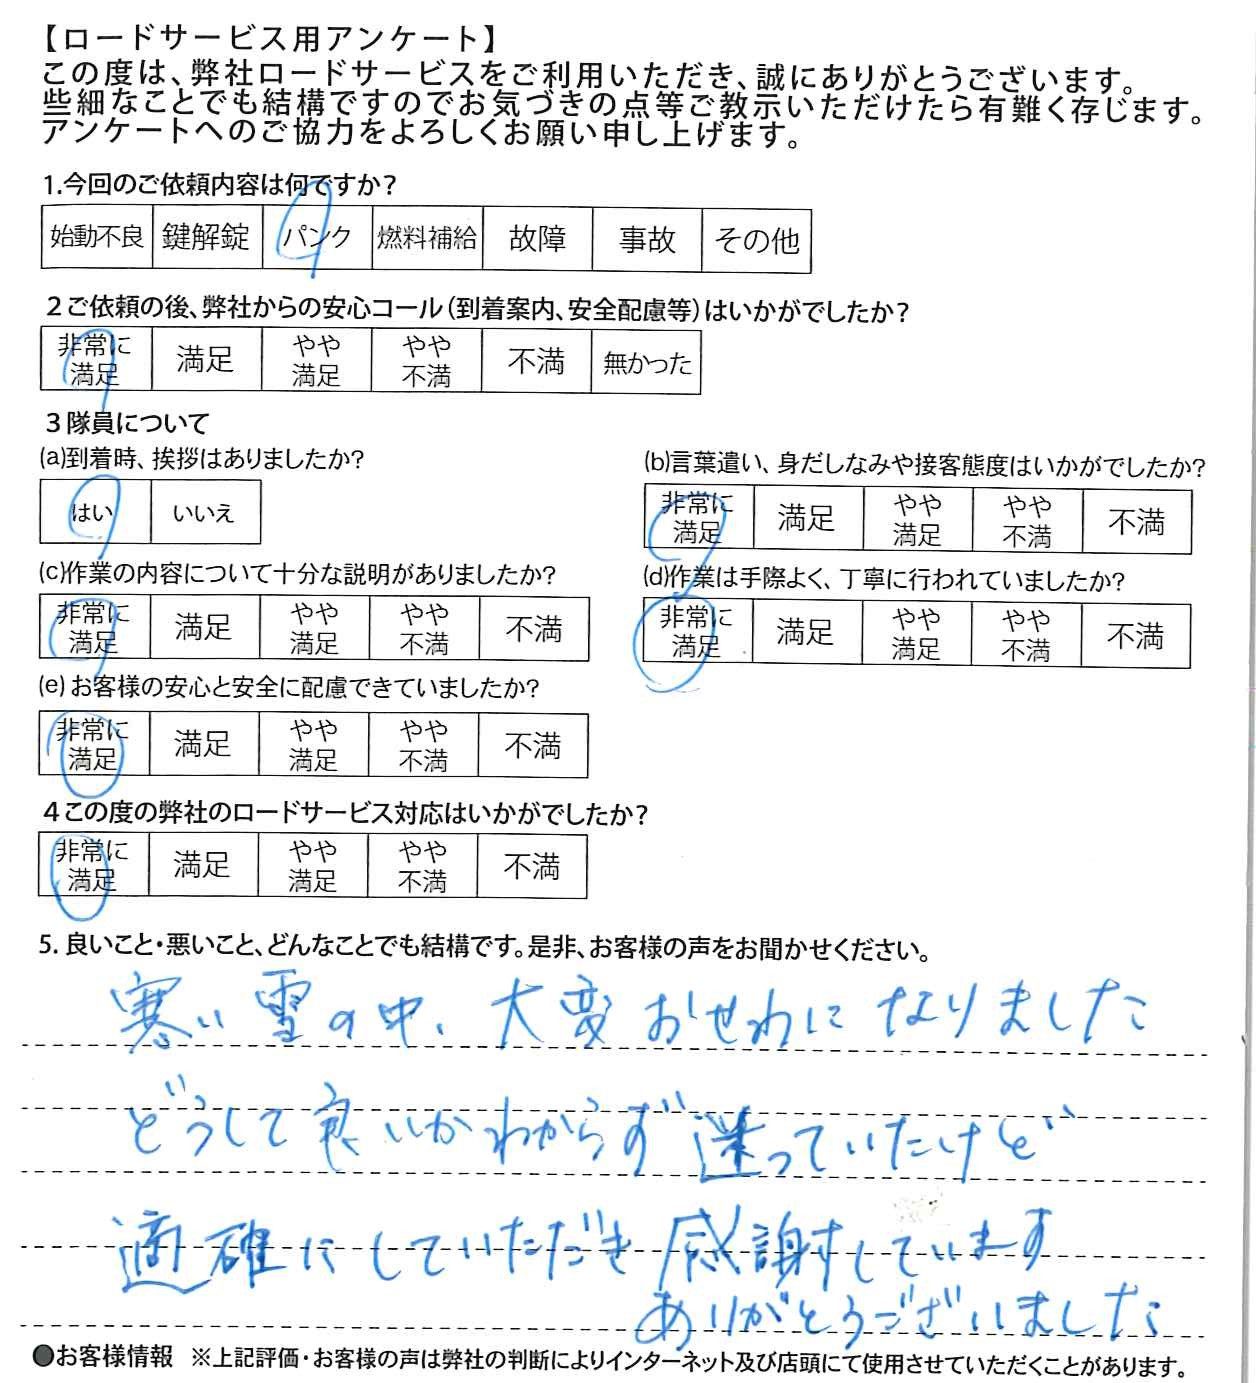 【ロードサービス用アンケート】
この度は、弊社ロードサービスをご利用いただき、誠にありがとうございます。
些細なことでも結構ですのでお気づきの点等ご教示いただけたら有難く存じます。
アンケートへのご協力をよろしくお願い申し上げます。
1.今回のご依頼内容は何ですか？
始動不良 鍵解錠 パンク 燃料補給 故障 事故 その他
２ご依頼の後、弊社からの安心コール（到着案内、安全配慮等）はいかがでしたか？
非常に満足 満足 やや満足 やや不満 不満 無かった
３隊員について
(a)到着時、挨拶はありましたか？
はい いいえ
(b)言葉遣い、身だしなみや接客態度はいかがでしたか？
非常に満足 満足 やや満足 やや不満 不満
(c)作業の内容について十分な説明がありましたか？
非常に満足 満足 やや満足 やや不満 不満
(d)作業は手際よく、丁寧に行われていましたか？
非常に満足 満足 やや満足 やや不満 不満
(e)お客様の安心と安全に配慮できていましたか？
非常に満足 満足 やや満足 やや不満 不満
４この度の弊社のロードサービス対応はいかがでしたか？
非常に満足 満足 やや満足 やや不満 不満
5.良いこと・悪いこと、どんなことでも結構です。是非、お客様の声をお聞かせください。
寒い雪の中、大変おせわになりました
どうして良いかわからず迷っていたけど
適確にしていただき感謝しています
ありがとうございました
●お客様情報 ※上記評価・お客様の声は弊社の判断によりインターネット及び店頭にて使用させていただくことがあります。